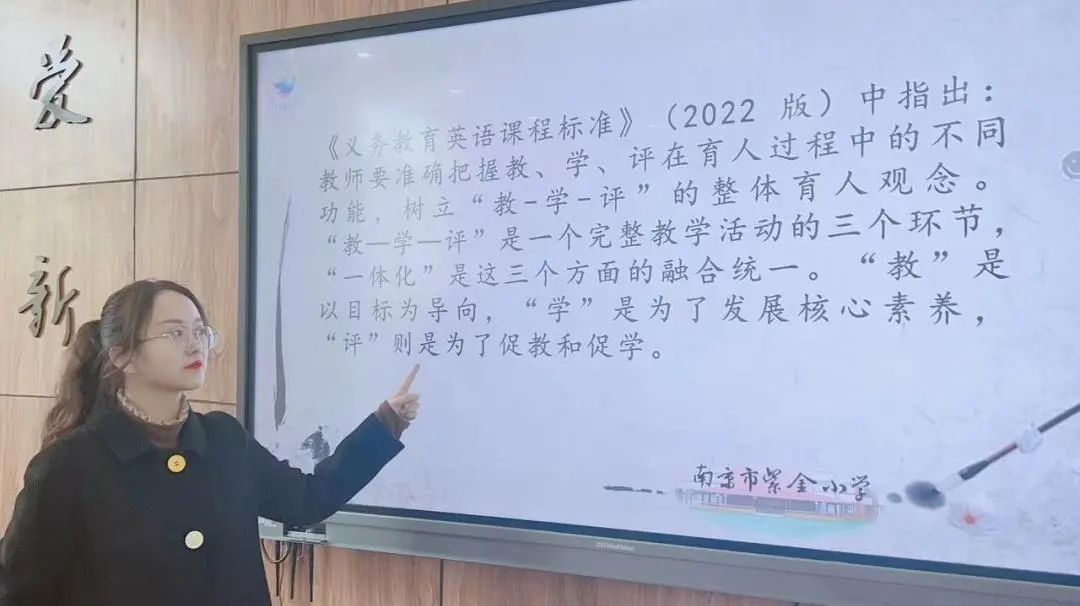 爱
新
《义务教育英语课程标准》（2022 版）中指出：
教师要准确把握教、学、评在育人过程中的不同
功能，树立“教-学-评”的整体育人观念。
“教—学—评”是一个完整教学活动的三个环节，
“一体化”是这三个方面的融合统一。“教”是
以目标为导向，“学”是为了发展核心素养，
“评”则是为了促教和促学。
南京市紫金小学